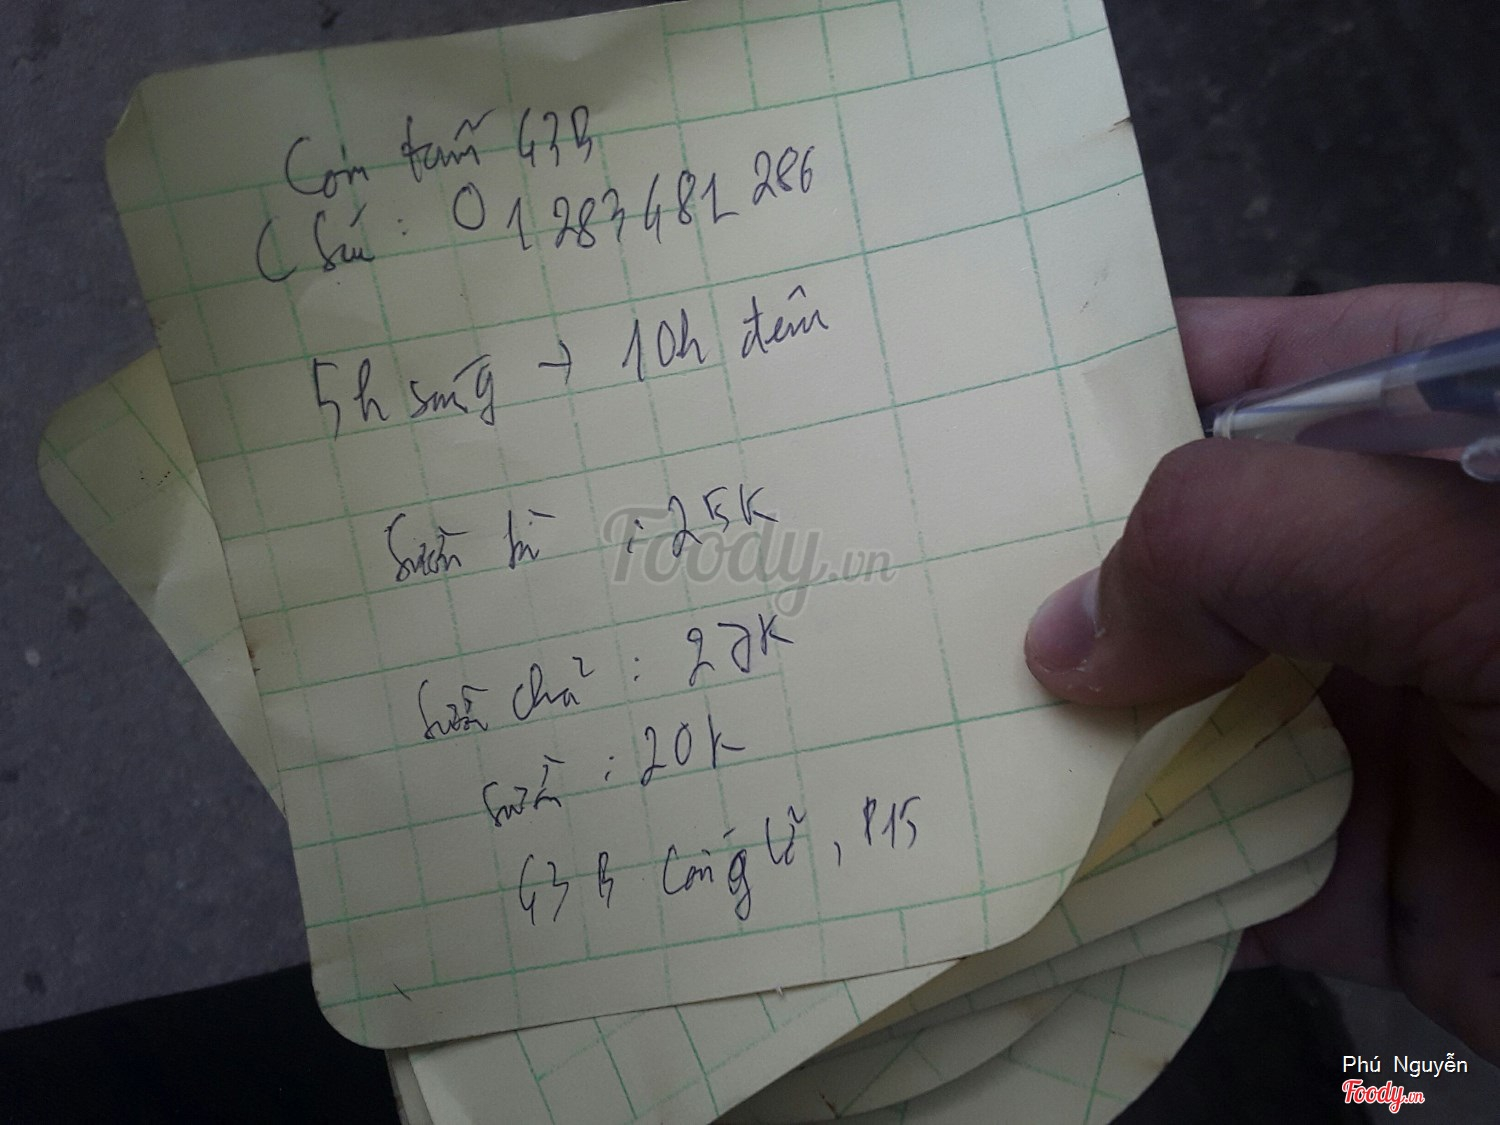 Cơm tấm 43B
C Sáu: 01283481286
5h sáng → 10h đêm
Sườn bì : 25K
Sườn chả : 27K
Sườn : 20K
43B Cống Lỡ, P15
Foody.vn
Phú Nguyễn
Foody.vn